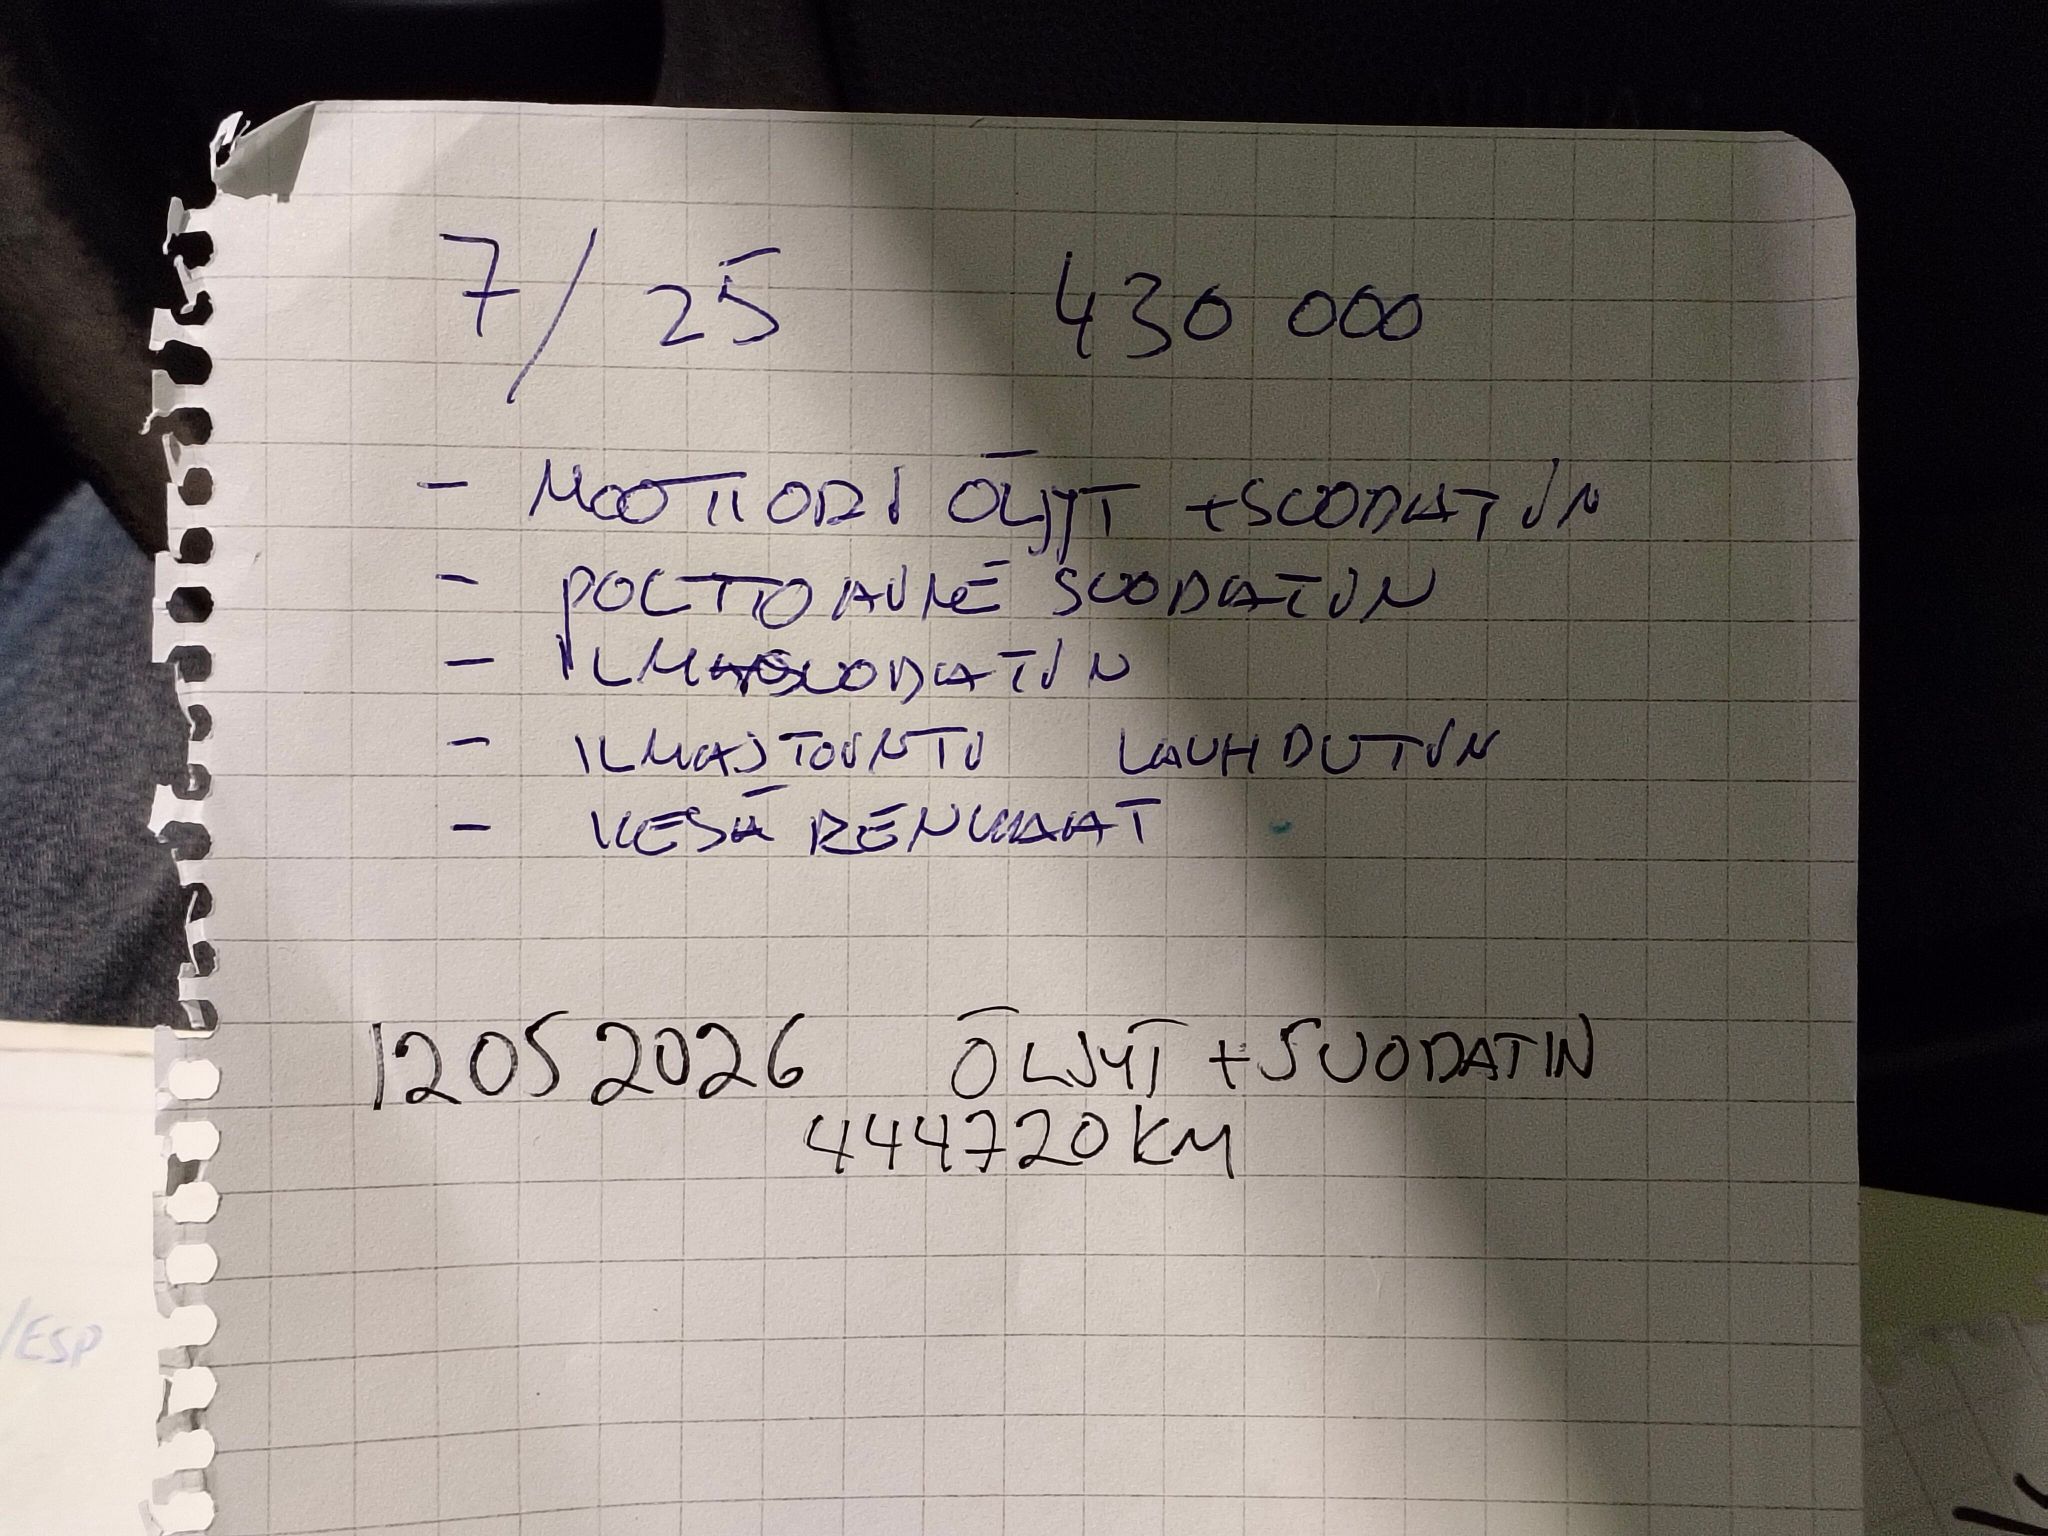 7/25 430 000
- MOOTTORI ÖLJYT +SUODATIN
- POLTTOAINE SUODATIN
- ILMASUODATIN
- ILMASTOINTI LAUHDUTIN
- KESÄ RENKAAT
12052026 ÖLJYT +SUODATIN
444720KM
/ESP